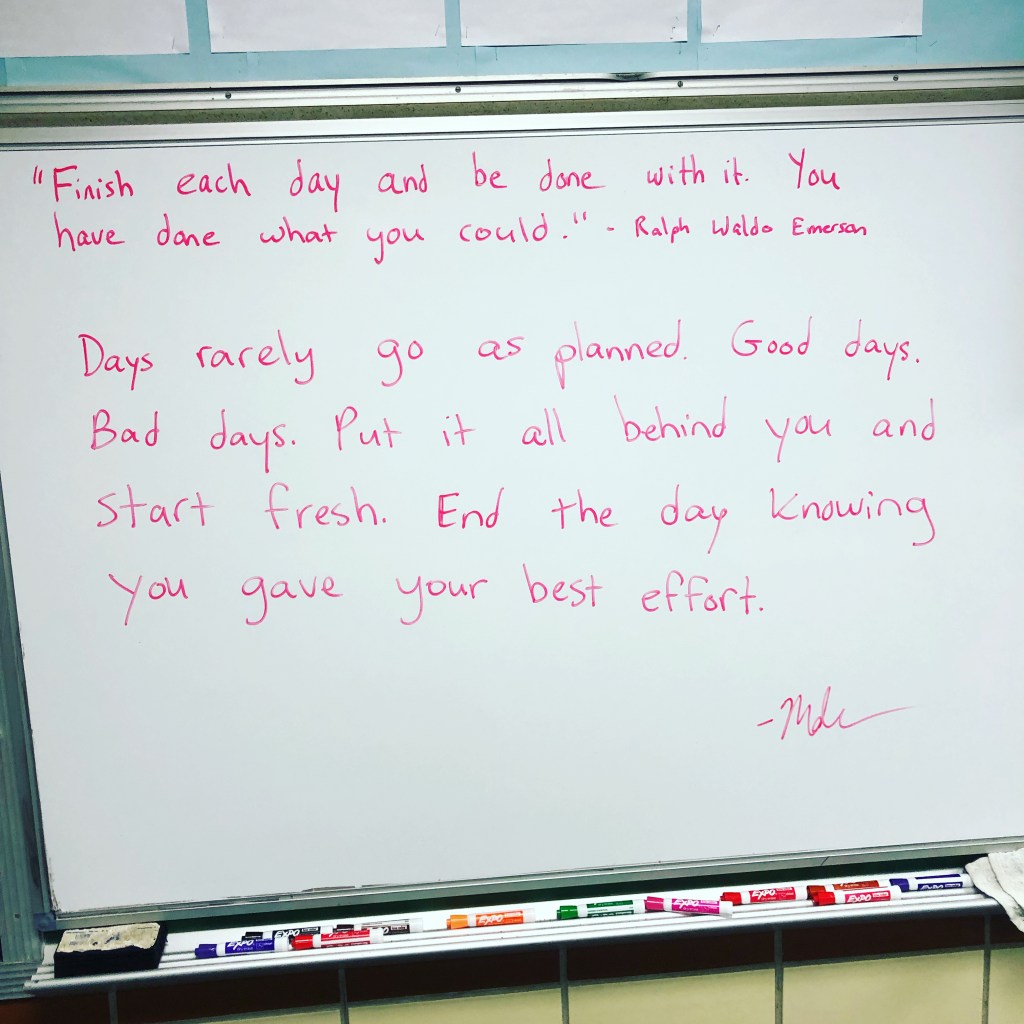 "Finish each day and be done with it. You
have done what you could." - Ralph Waldo Emerson
Days rarely go as planned. Good days.
Bad days. Put it all behind you and
start fresh. End the day knowing
you gave your best effort.
EXPO
EXPO
EXPO
EXPO
EXPO
EXPO
EXPO
EXPO